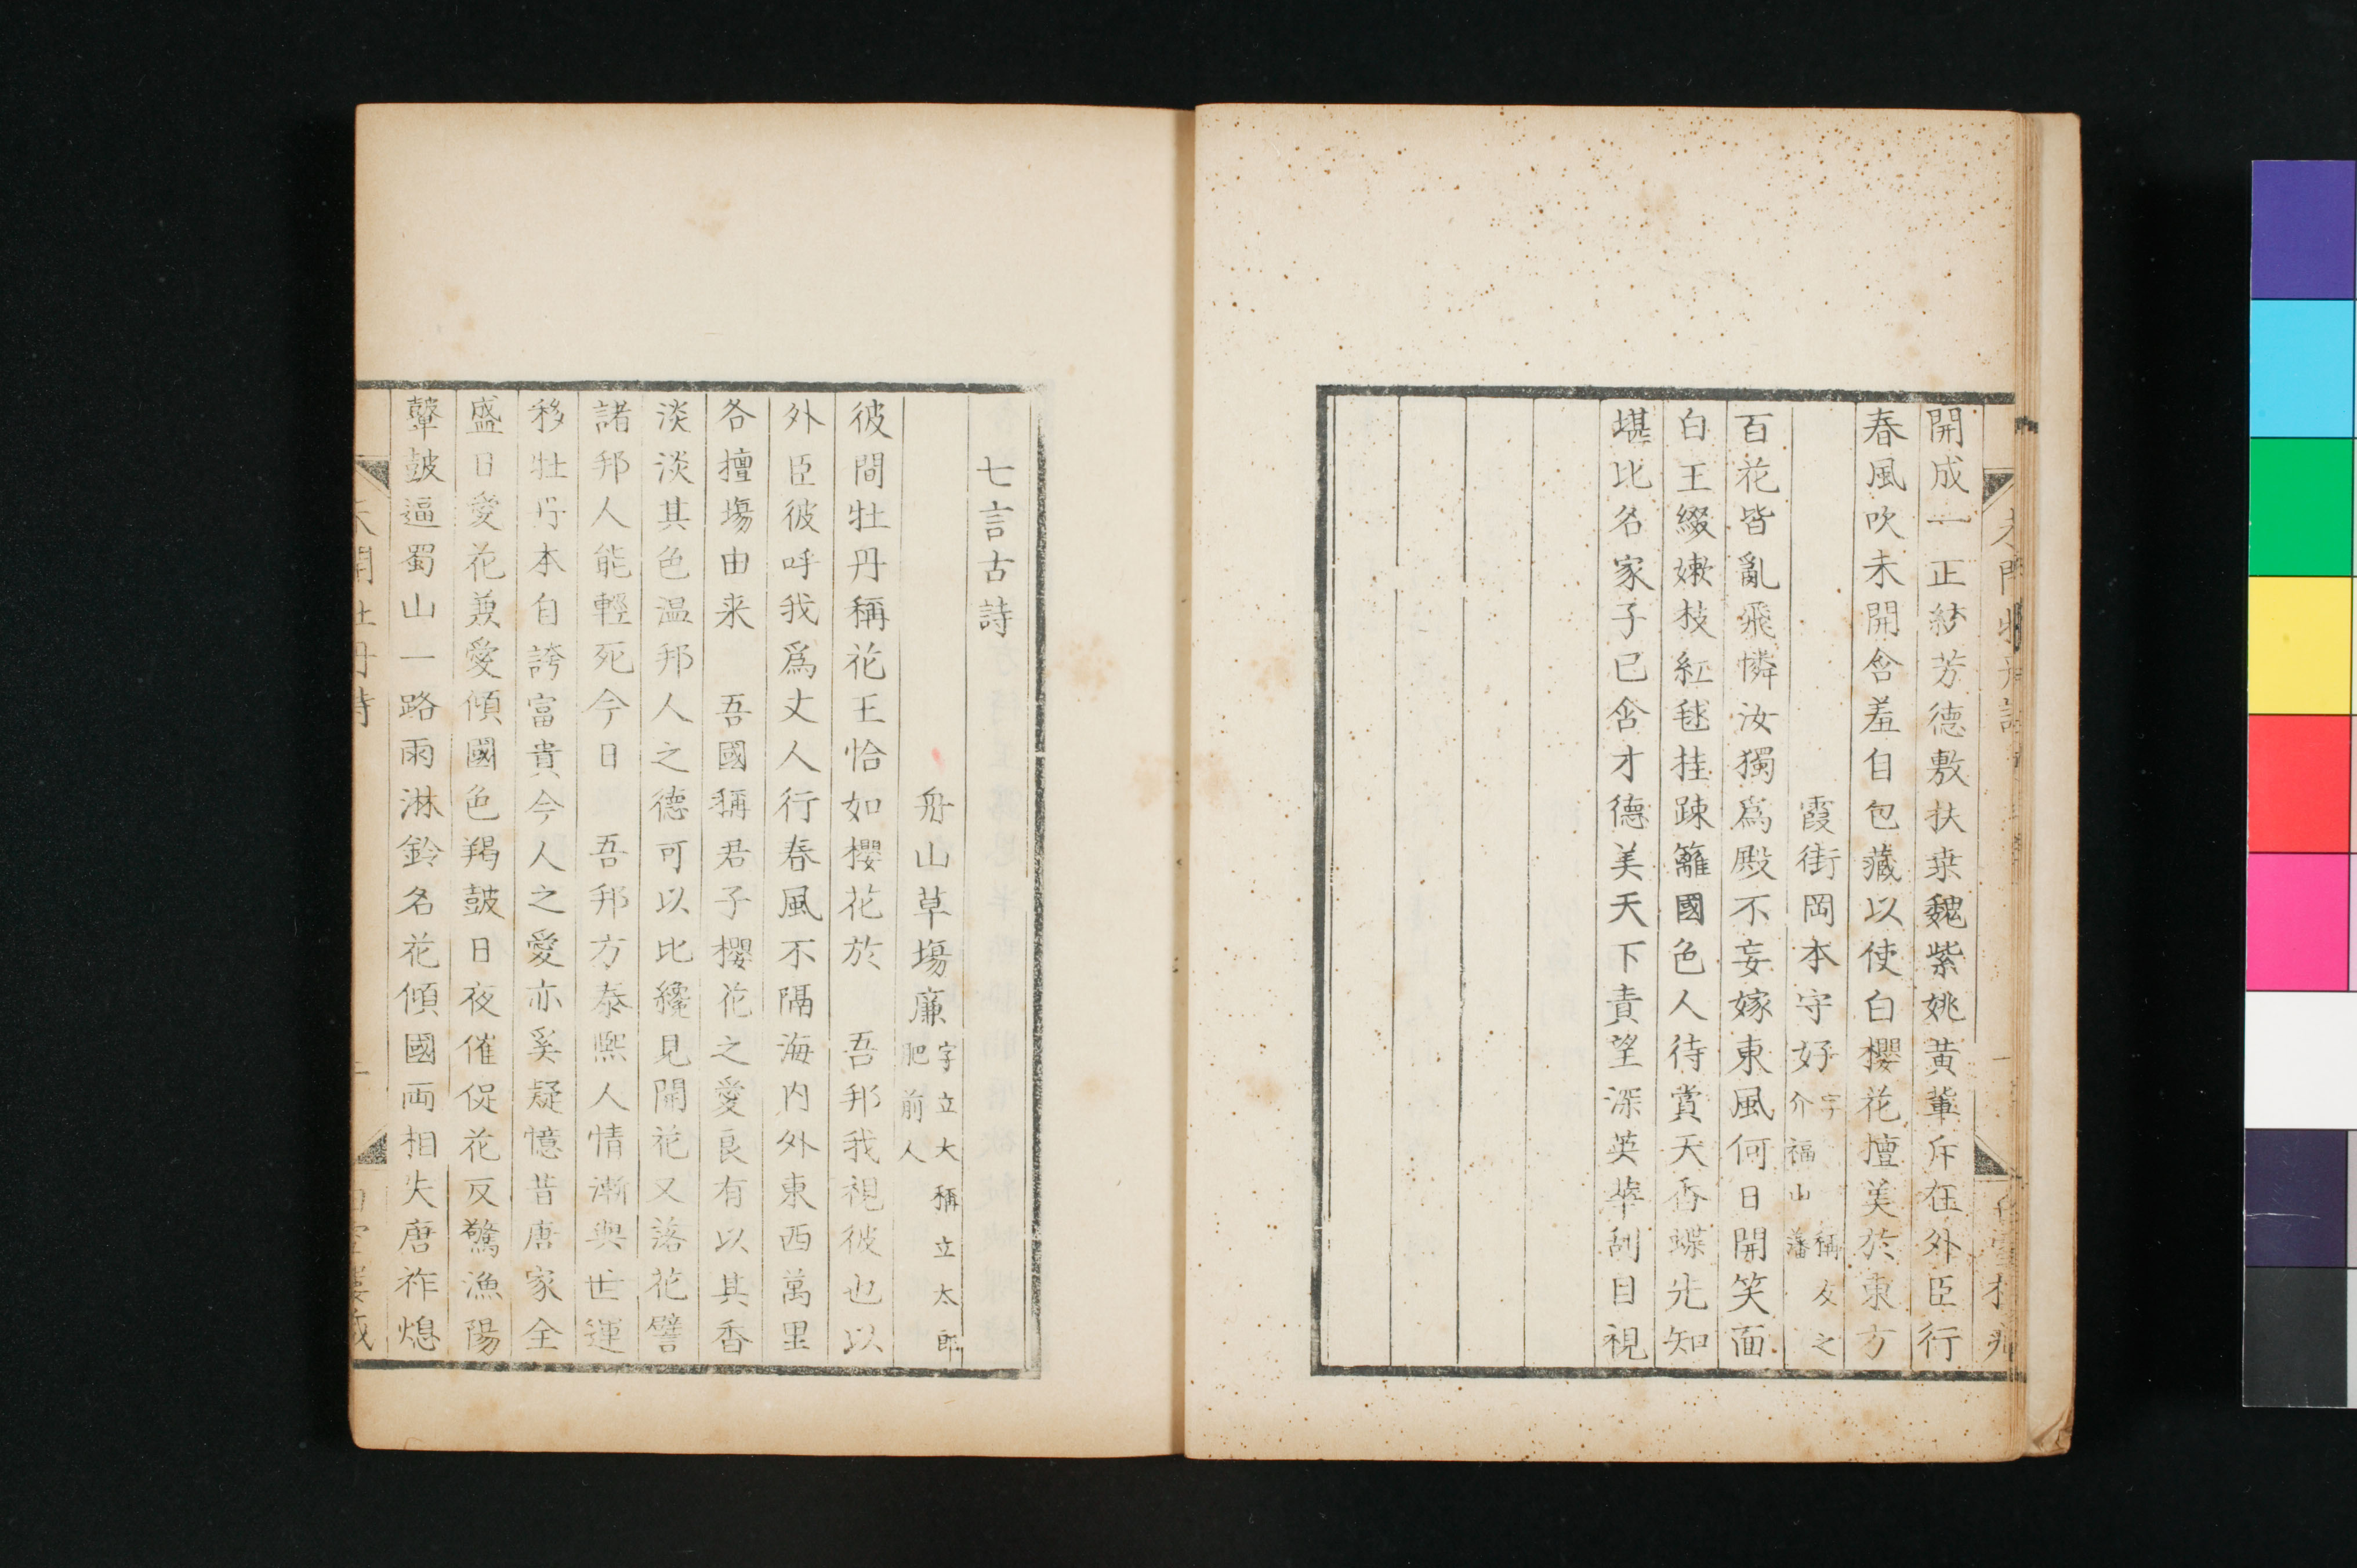 開成一正紗芳德敷扶桒魏紫姚黃軰斥在外臣行
春風吹未開含羞自包藏以使白櫻花擅美於東方
霞街岡本守好字介福山稱友之藩
百花皆亂飛憐汝獨爲殿不妄嫁東風何日開笑面
白王綴嫩枝紅毬挂踈籬國色人待賞天香蝶先知
堪比名家子已含才德美天下責望深英華刮目視
七言古詩
舟山草塲廉字立大稱立太郎肥前人
彼間牡丹稱花王恰如櫻花於 吾邦我視彼也以
外臣彼呼我爲丈人行春風不隔海内外東西萬里
各擅塲由来 吾國稱君子櫻花之愛良有以其香
淡淡其色温邦人之德可以比纔見開花又落花譬
諸邦人能輕死今日 吾邦方泰熈人情漸與世運
移牡丹本自誇富貴今人之愛亦奚疑憶昔唐家全
盛日愛花兼愛傾國色羯鼓日夜催促花反驚漁陽
鼙鼓逼蜀山一路雨淋鈴名花傾國両相失唐祚熄